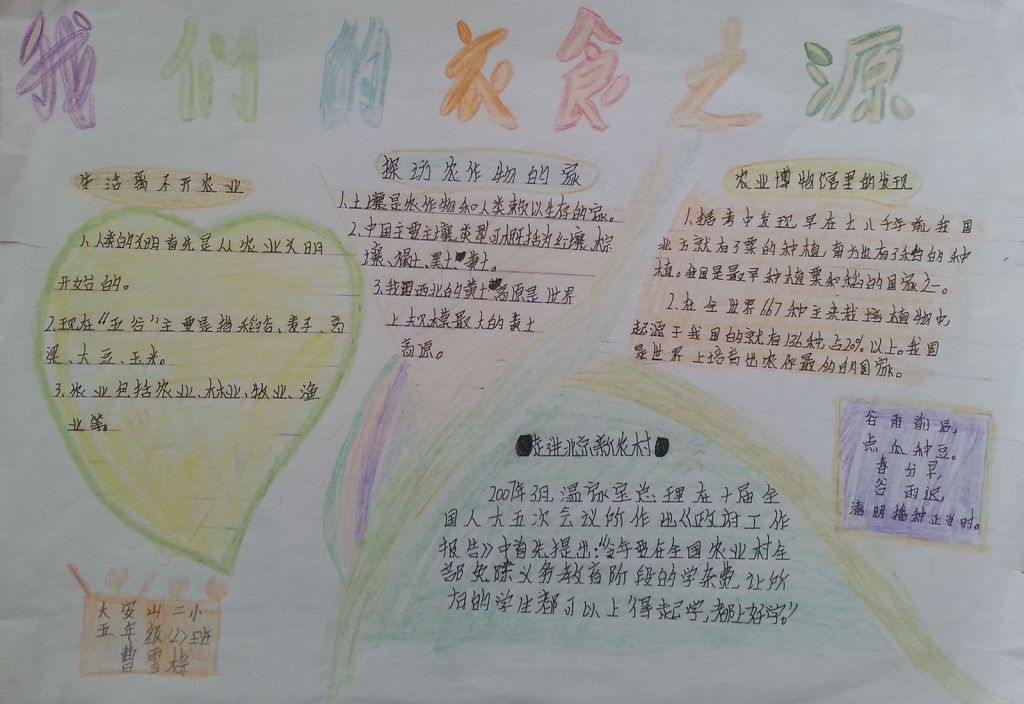 我们的衣食之源
生活离不开农业
1.人类的文明首先是从农业文明
开始的。
2.现在“五谷”主要是指稻谷、麦子、高
梁、大豆、玉米。
3.农业包括农业、林业、牧业、渔
业等。
探访农作物的家
1.土壤是农作物和人类赖以生存的家。
2.中国主要土壤类型可概括为红壤、棕
壤、褐土、黑土、黄土。
3.我国西北的黄土高原是世界
上规模最大的黄土
高原。
农业博物馆里的发现
1.据考中发现,早在七八千年前,我国
北方就有了粟的种植,南方也有了水稻的种
植。我国是最早种植粟和稻的国家之一。
2.在全世界667种主来栽培植物中,
起源于我国的就有136种,占20%以上。我国
是世界上培育出农作最多的国家。
谷雨前后,
点瓜种豆。
春分早,
谷雨迟,
清明播种正当时。
走进北京新农村
2007年3月,温家宝总理在十届全
国人大五次会议所作出《政府工作
报告》中首先提出:“今年要在全国农业村全
部免除义务教育阶段的学杂费,让所
有的学生都可以上得起学,都上好学。”
大安山二小
五年级(2)班
曹雪梅